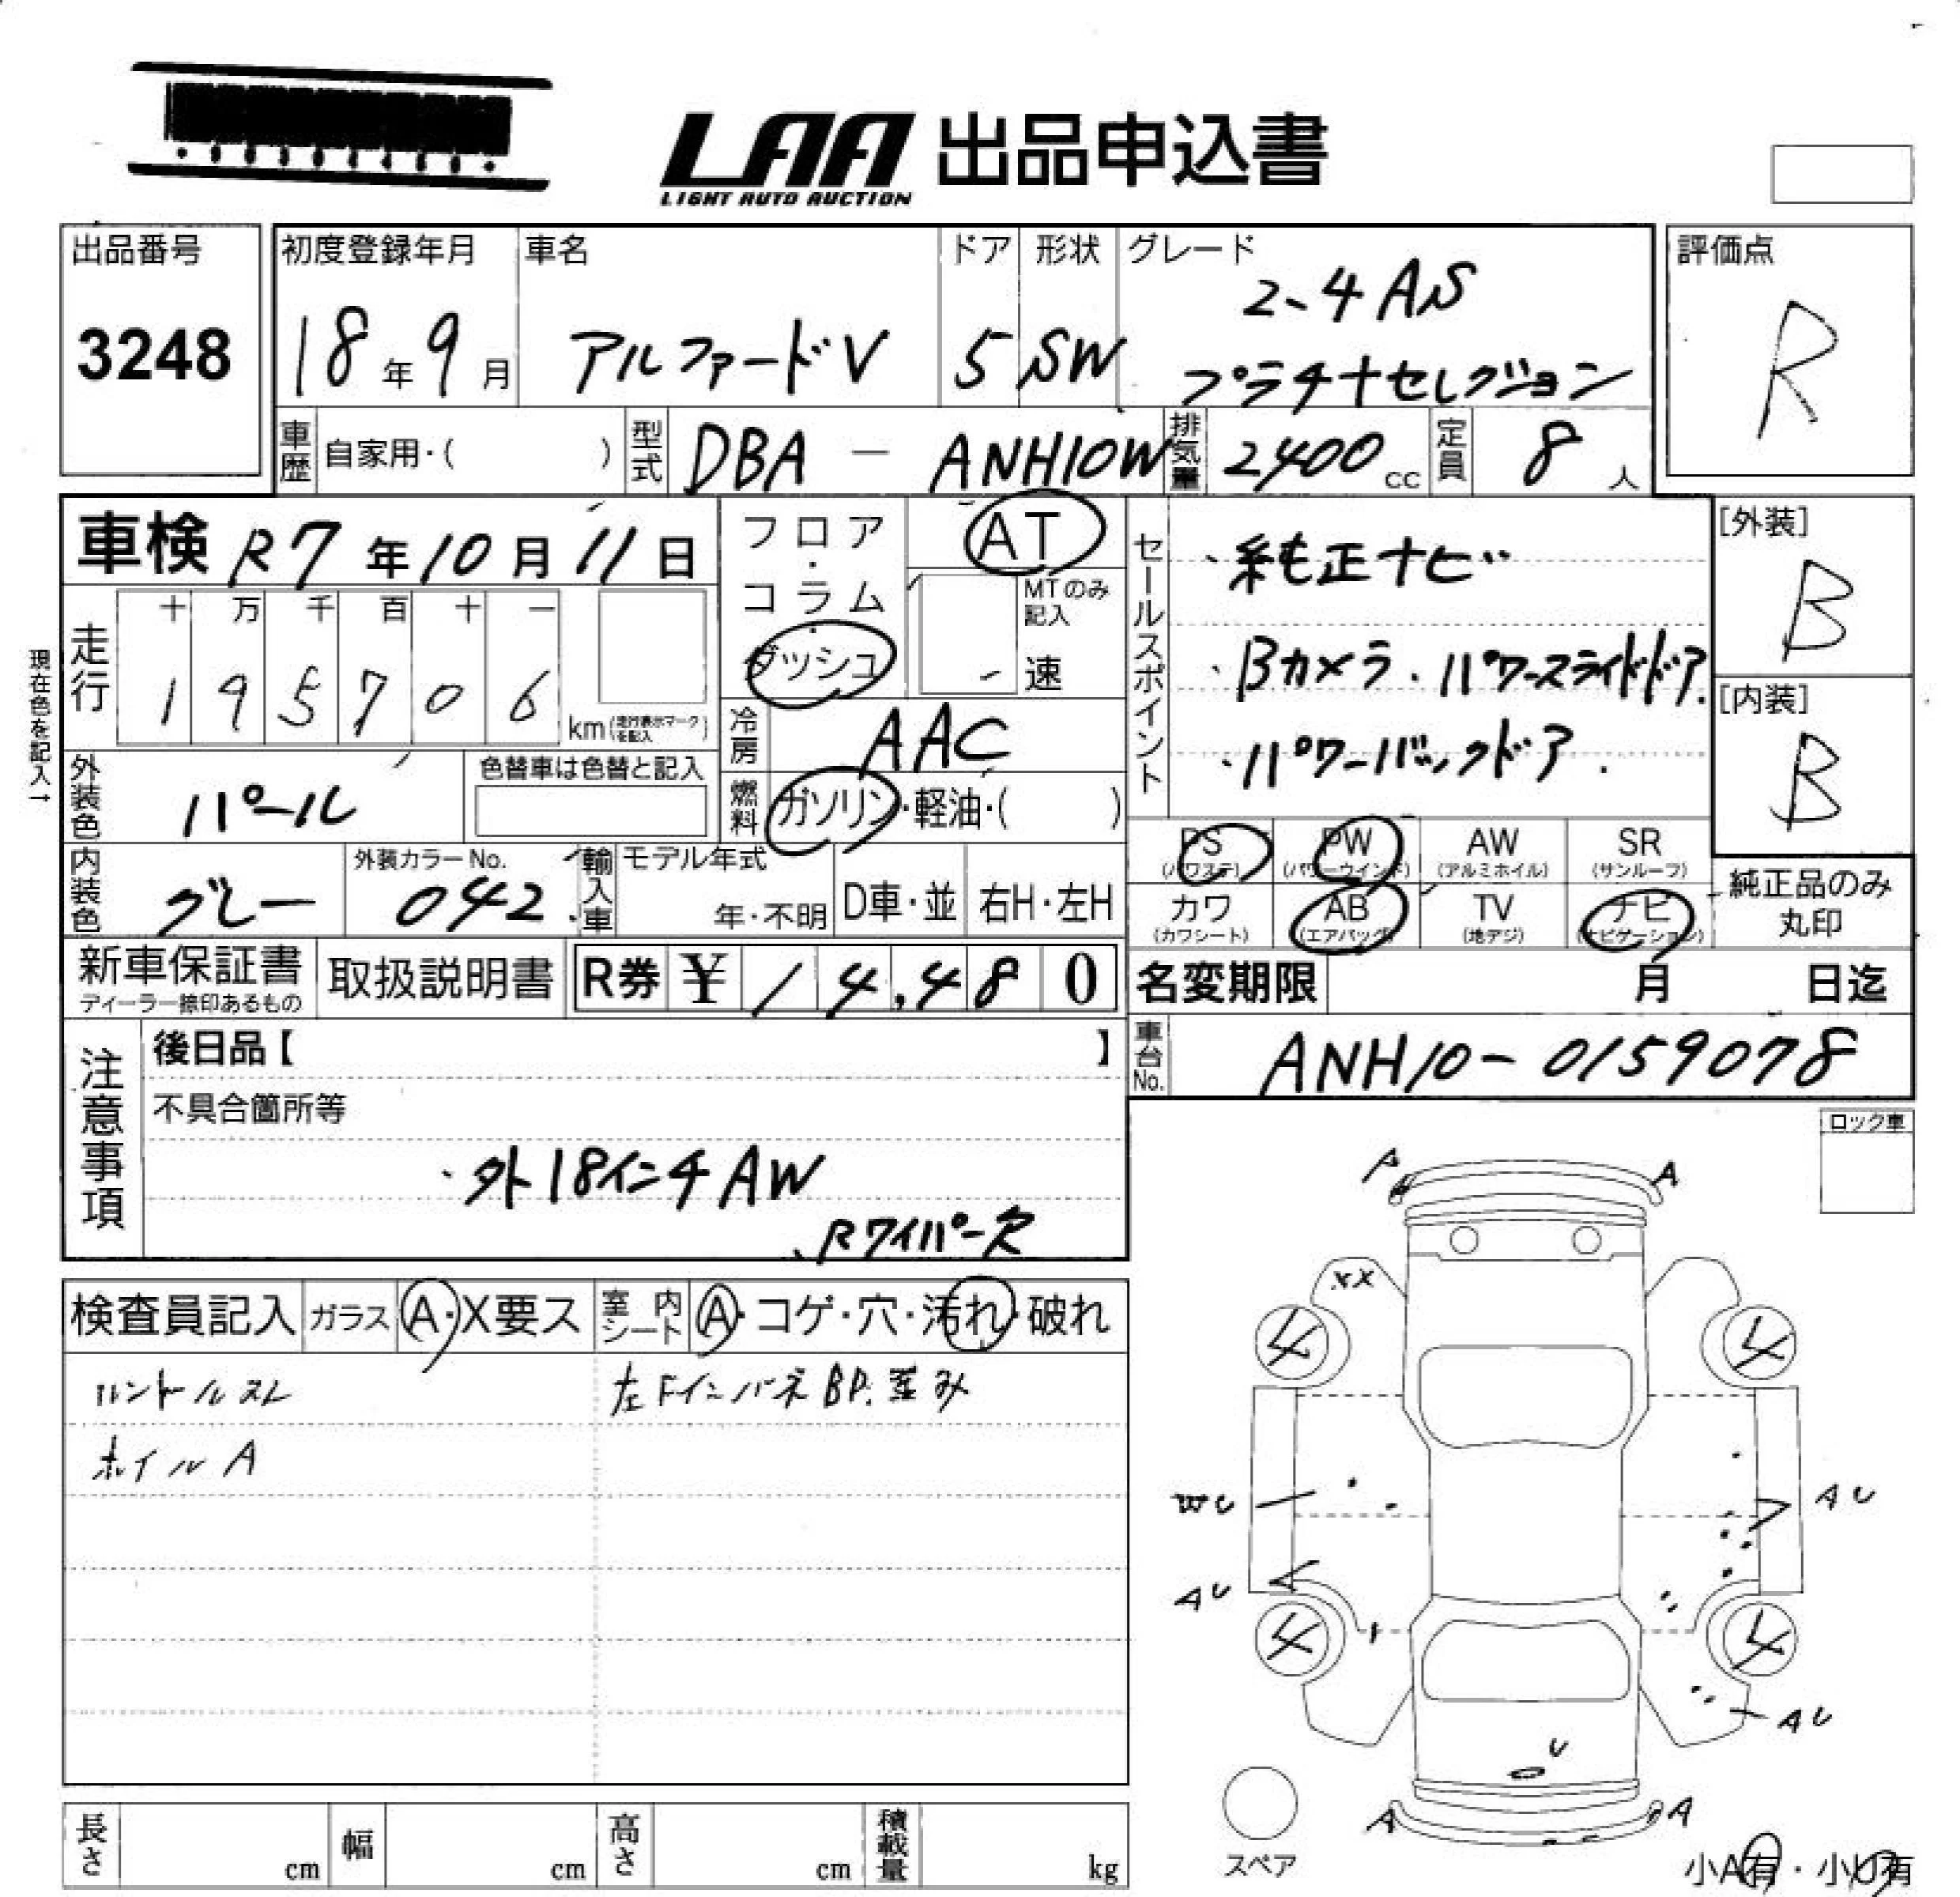 LAA 出品申込書
LIGHT AUTO AUCTION
出品番号
3248
初度登録年月
18年9月
車名
アルファードV
ドア
5
形状
SW
グレード
2、4 AS
プラチナセレクション
評価点
R
車歴 自家用・( )
型式 DBA - ANH10W
排気量 2400 cc
定員 8 人
車検 R7年10月11日
フロア・コラム・ダッシュ
AT
MTのみ記入
速
セールスポイント
・純正ナビ
・Bカメラ.パワースライドドア.
・パワーバックドア.
[外装]
B
[内装]
B
現在色を記入→
走行
十 万 千 百 十 一
1 9 5 7 0 6 km (走行表示マークを記入)
冷房 AAC
外装色 パール
色替車は色替と記入
燃料 ガソリン・軽油・( )
内装色 グレー
外装カラーNo.
042
輸入車
モデル年式
年・不明
D車・並
右H・左H
PS (パワステ)
PW (パワーウインド)
AW (アルミホイル)
SR (サンルーフ)
カワ (カワシート)
AB (エアバッグ)
TV (地デジ)
ナビ (ナビゲーション)
純正品のみ丸印
新車保証書
ディーラー捺印あるもの
取扱説明書
R券 ¥ 14,480
名変期限 月 日迄
車台No. ANH10-0159078
注意事項
後日品【 】
不具合箇所等
・外18インチAW
、Rワイパー欠
ロック車
検査員記入
ガラス A・X要ス
室内シート A・コゲ・穴・汚れ・破れ
ハンドルスレ
左FインパネBP.歪み
ホイルA
A A
XX
4 4
WU
AU
AU
4 4
AU
U
A A
スペア
小A有・小U有
長さ cm
幅 cm
高さ cm
積載量 kg